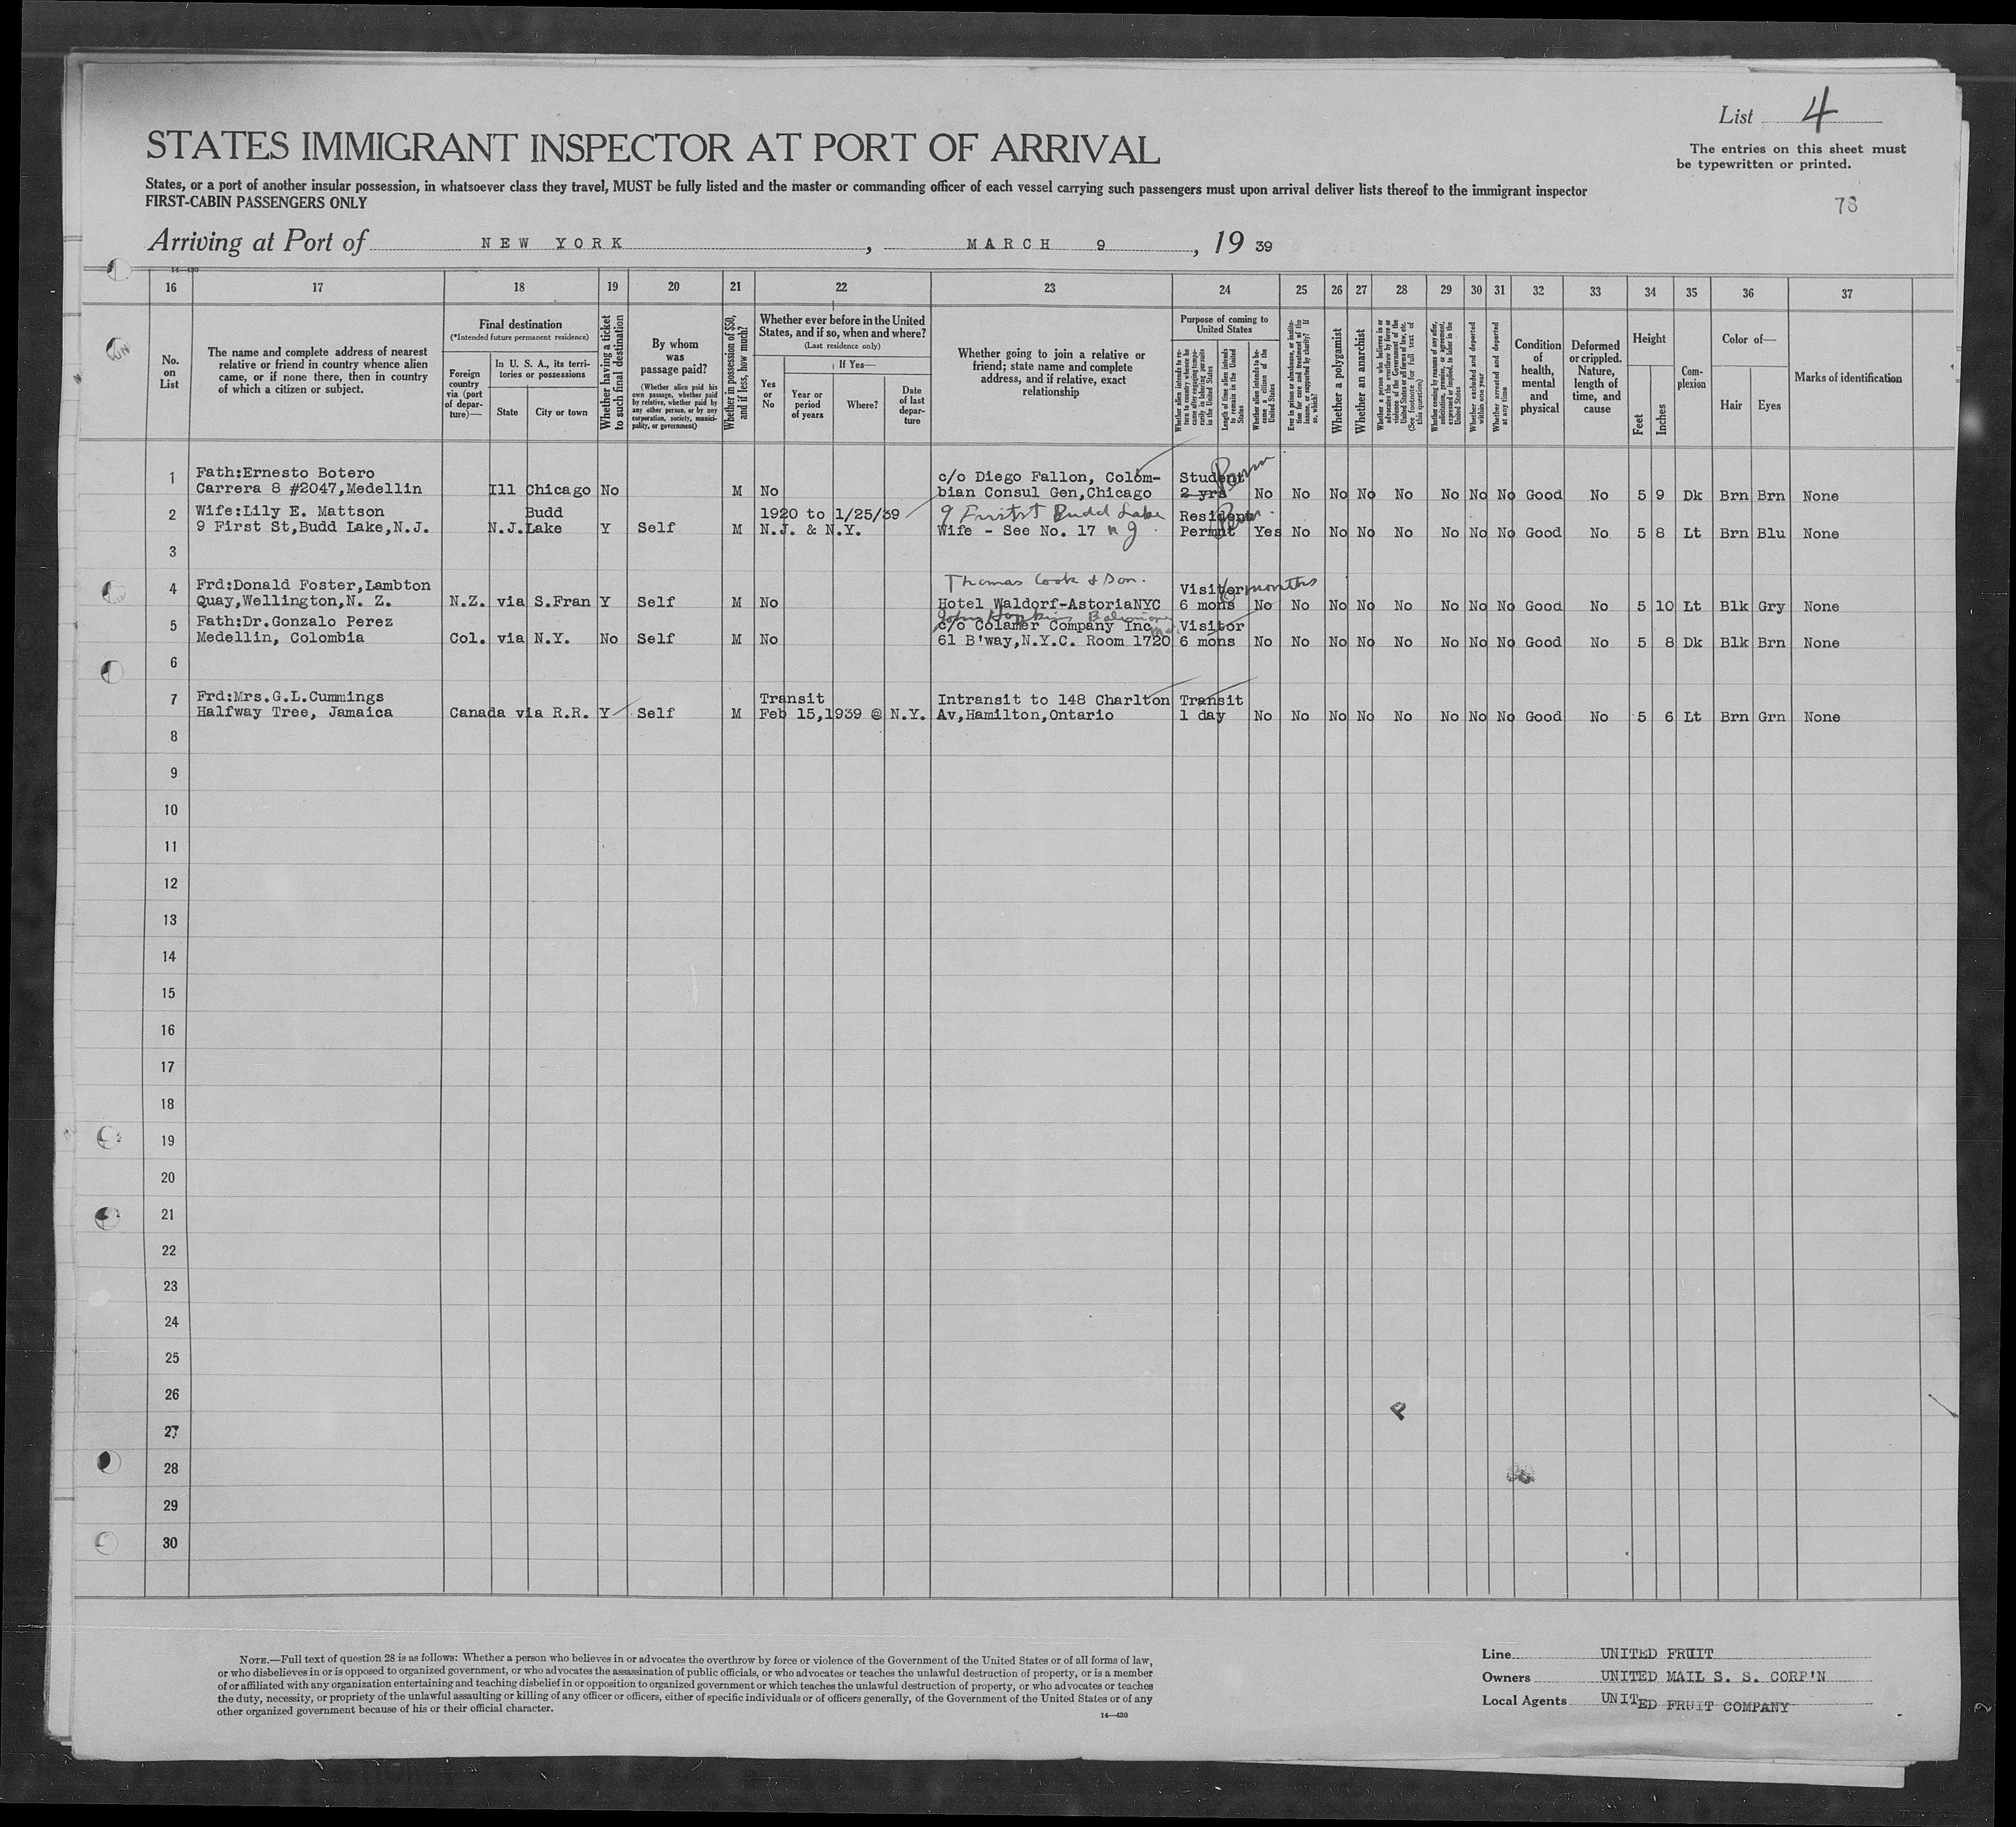 List 4
The entries on this sheet must
be typewritten or printed.
78
STATES IMMIGRANT INSPECTOR AT PORT OF ARRIVAL
States, or a port of another insular possession, in whatsoever class they travel, MUST be fully listed and the master or commanding officer of each vessel carrying such passengers must upon arrival deliver lists thereof to the immigrant inspector
FIRST-CABIN PASSENGERS ONLY
Arriving at Port of NEW YORK, MARCH 9, 19 39
14—430
16 17 18 19 20 21 22 23 24 25 26 27 28 29 30 31 32 33 34 35 36 37
No. on List
The name and complete address of nearest
relative or friend in country whence alien
came, or if none there, then in country
of which a citizen or subject.
Final destination
(*Intended future permanent residence)
Foreign country via (port of departure)—
In U. S. A., its territories or possessions
State
City or town
Whether having a ticket to such final destination
By whom was passage paid?
(Whether alien paid his own passage, whether paid by relative, whether paid by any other person, or by any corporation, society, municipality, or government)
Whether in possession of $50, and if less, how much?
Whether ever before in the United States, and if so, when and where?
(Last residence only)
Yes or No
If Yes—
Year or period of years
Where?
Date of last departure
Whether going to join a relative or
friend; state name and complete
address, and if relative, exact
relationship
Purpose of coming to United States
Whether alien intends to return to country whence he came after engaging temporarily in laboring pursuits in the United States
Length of time alien intends to remain in the United States
Whether alien intends to become a citizen of the United States
Ever in prison or almshouse, or institution for care and treatment of the insane, or supported by charity? If so, which?
Whether a polygamist
Whether an anarchist
Whether a person who believes in or advocates the overthrow by force or violence of the Government of the United States or all forms of law, etc. (See footnote for full text of this question)
Whether coming by reasons of any offer, solicitation, promise, or agreement, expressed or implied, to labor in the United States
Whether excluded and deported within one year
Whether arrested and deported at any time
Condition of health, mental and physical
Deformed or crippled. Nature, length of time, and cause
Height
Feet
Inches
Complexion
Color of—
Hair
Eyes
Marks of identification
1 Fath:Ernesto Botero c/o Diego Fallon, Colom- Student Perm
Carrera 8 #2047,Medellin Ill Chicago No M No bian Consul Gen,Chicago 2 yrs No No No No No No No No Good No 5 9 Dk Brn Brn None
2 Wife:Lily E. Mattson Budd 1920 to 1/25/39 9 First St Budd Lake Resident
9 First St,Budd Lake,N.J. N.J. Lake Y Self M N.J. & N.Y. Wife - See No. 17 N J Permnt Yes No No No No No No No Good No 5 8 Lt Brn Blu None
3
Thomas Cook & Son.
4 Frd:Donald Foster,Lambton Visitor 6 months
Quay,Wellington,N. Z. N.Z. via S.Fran Y Self M No Hotel Waldorf-AstoriaNYC 6 mons No No No No No No No No Good No 5 10 Lt Blk Gry None
John Hopkins Baltimore Md.
5 Fath:Dr.Gonzalo Perez c/o Colamer Company Inc Visitor
Medellin, Colombia Col. via N.Y. No Self M No 61 B'way,N.Y.C. Room 1720 6 mons No No No No No No No No Good No 5 8 Dk Blk Brn None
6
7 Frd:Mrs.G.L.Cummings Transit Intransit to 148 Charlton Transit
Halfway Tree, Jamaica Canada via R.R. Y Self M Feb 15,1939 @ N.Y. Av,Hamilton,Ontario 1 day No No No No No No No No Good No 5 6 Lt Brn Grn None
8
9
10
11
12
13
14
15
16
17
18
19
20
21
22
23
24
25
26
27
28
29
30
NOTE.—Full text of question 28 is as follows: Whether a person who believes in or advocates the overthrow by force or violence of the Government of the United States or of all forms of law,
or who disbelieves in or is opposed to organized government, or who advocates the assassination of public officials, or who advocates or teaches the unlawful destruction of property, or is a member
of or affiliated with any organization entertaining and teaching disbelief in or opposition to organized government or which teaches the unlawful destruction of property, or who advocates or teaches
the duty, necessity, or propriety of the unlawful assaulting or killing of any officer or officers, either of specific individuals or of officers generally, of the Government of the United States or of any
other organized government because of his or their official character.
14—430
Line UNITED FRUIT
Owners UNITED MAIL S. S. CORP'N
Local Agents UNITED FRUIT COMPANY